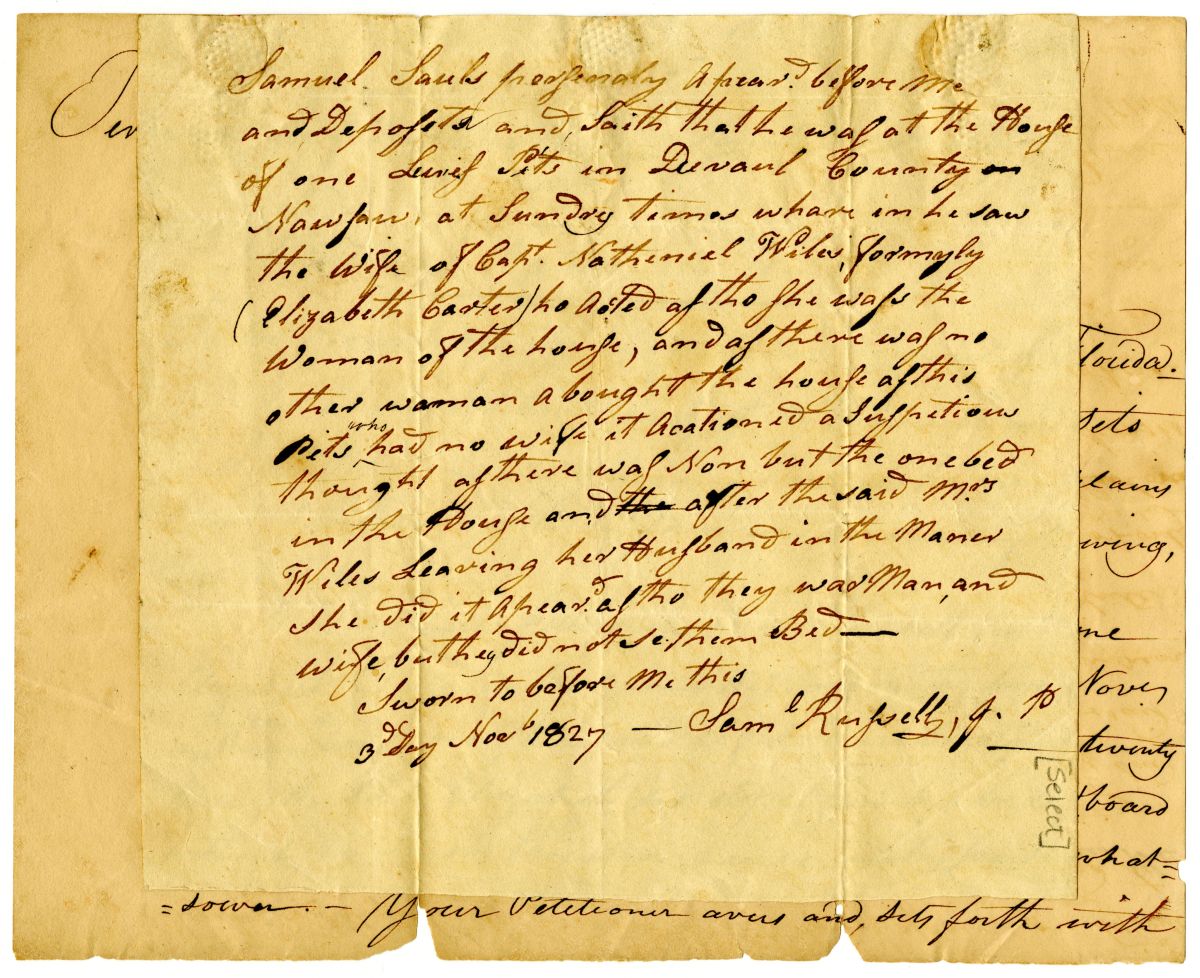 Samuel Sauls persenaly Apeard. before Me
and Deposets and Saith that he was at the House
of one Lewis Pits in Duvaul County on
Nawsaw, at Sundry times whare in he saw
the Wife of Capt. Natheniel Wiles, formyly
(Elizabeth Carter) ho Acted as tho She wass the
Woman of the house, and as there was no
other waman abought the house as this
Pits who had no wife it Acationed a Suspetion
thought as there was Non but the one bed
in the House and the after the said Mrs
Wiles Leaving her Husband in the Maner
she did it Apeard. as tho they was Man, and
wife, but hey did not se them Bed—
Sworn to before Me this
3d Day Novb 1827 — Saml Russell, J. P
[Select]
Florida.
sets
wing,
Nover
twenty
board
what=
=soever. — Your Petitioner avers and, sets forth with